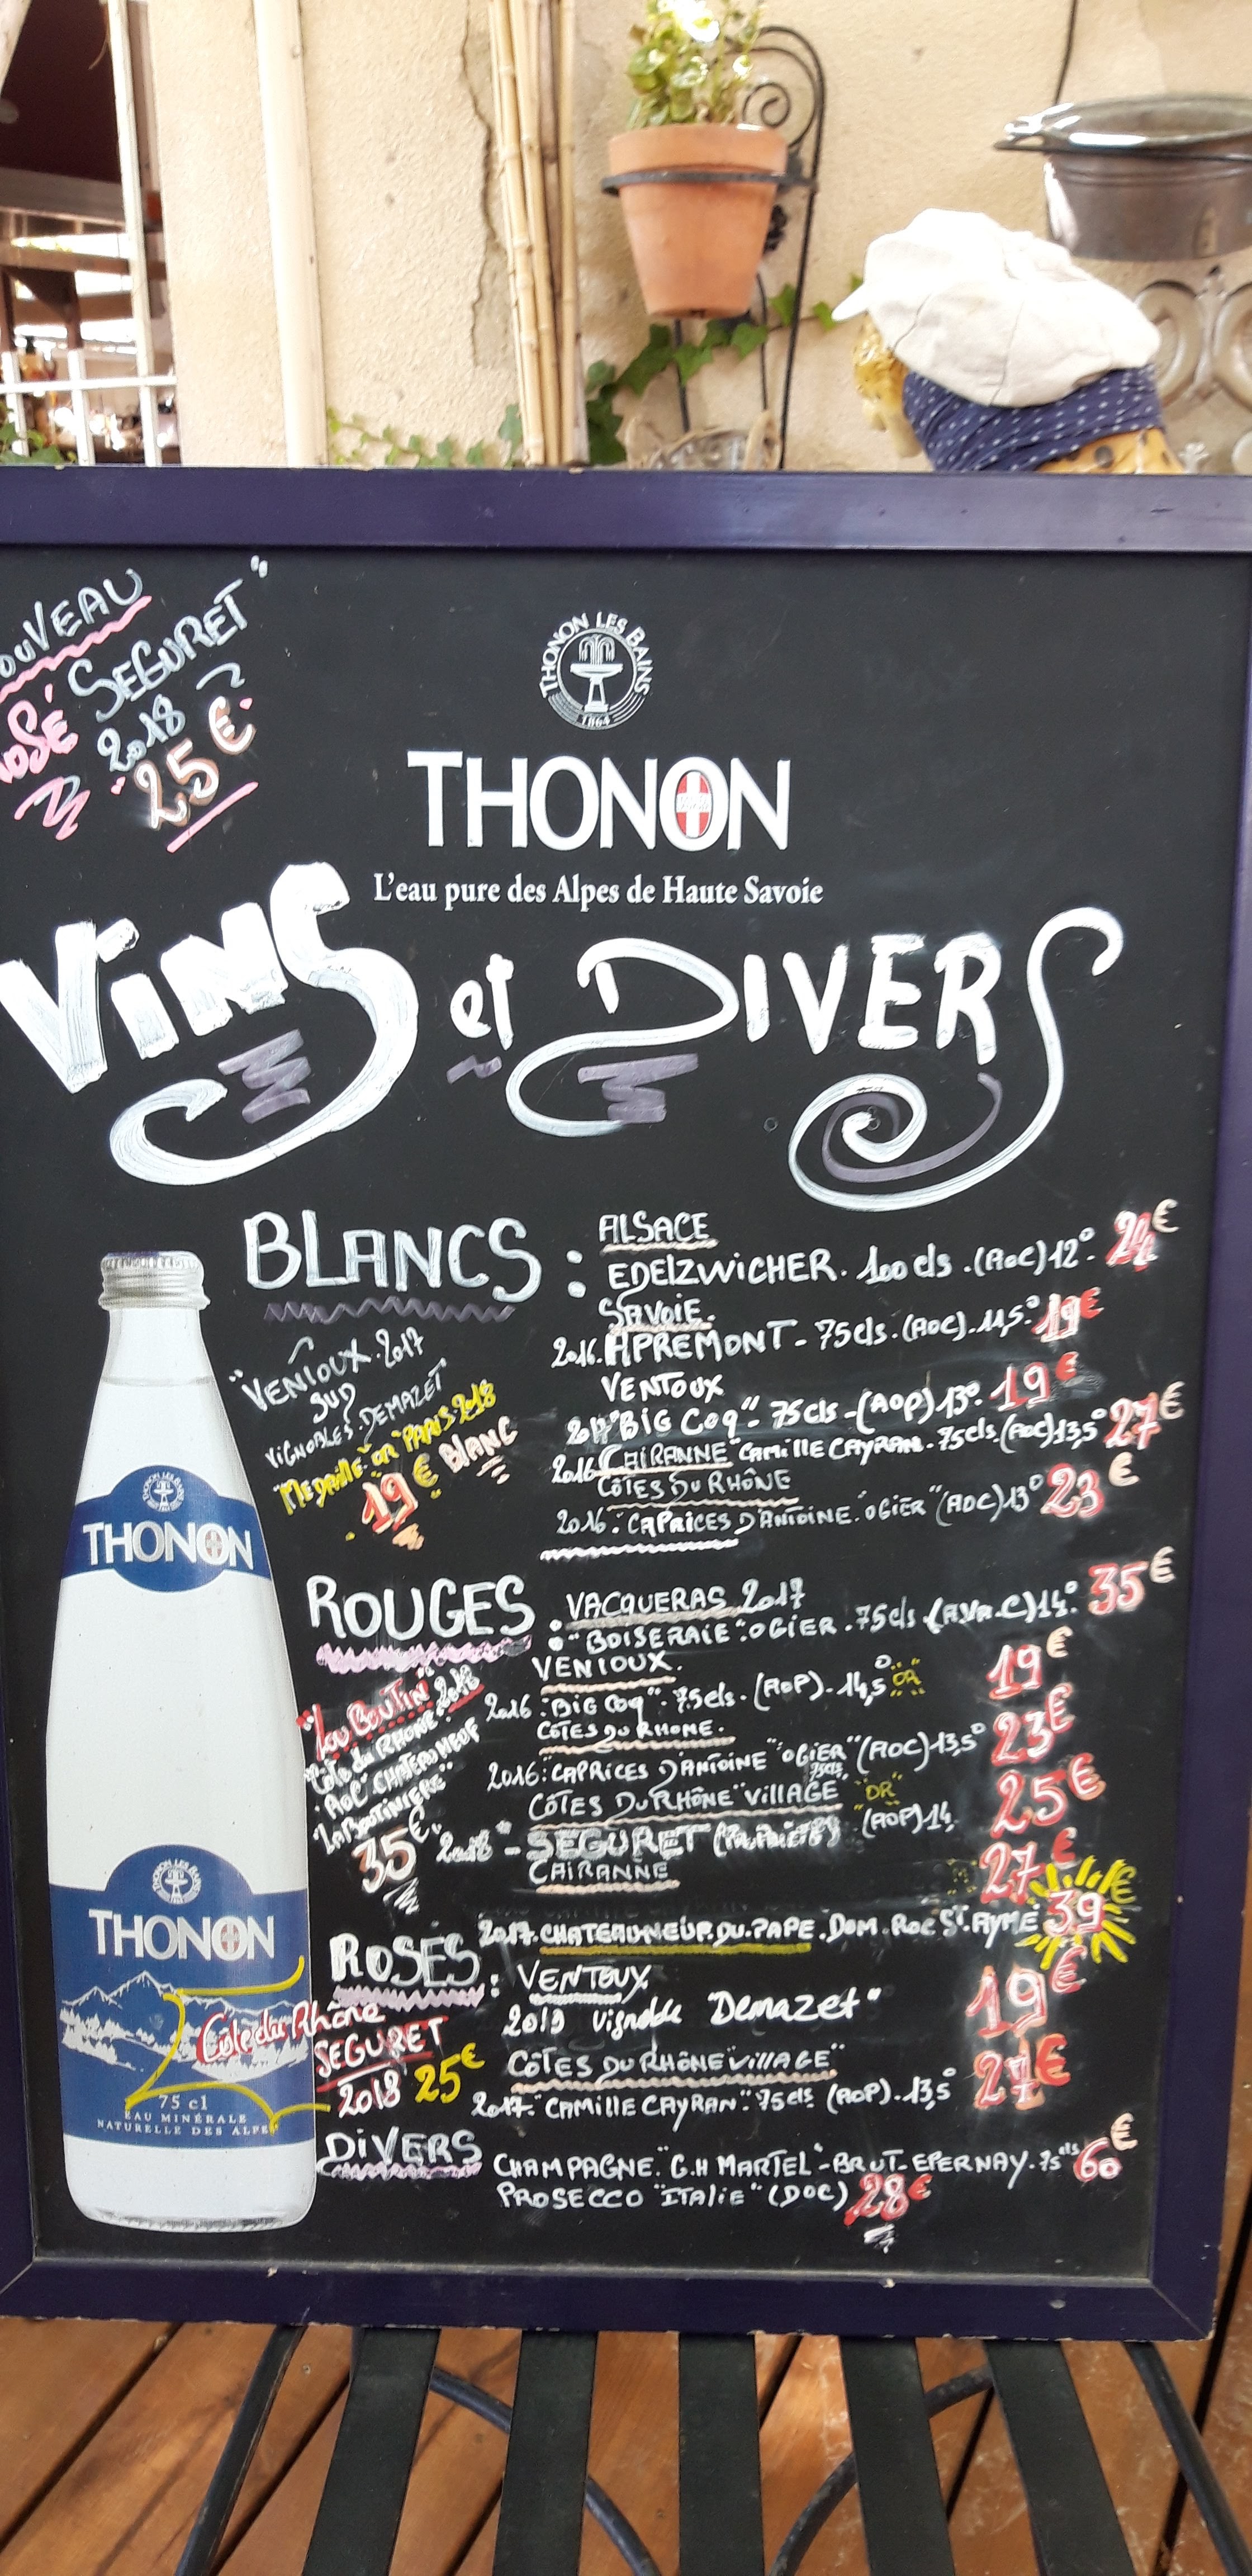 OUVEAU
OSÉ SEGURET"
2018
25€
THONON LES BAINS
1864
THONON
L'eau pure des Alpes de Haute Savoie
ViNS et DIVERS
BLANCS :
ALSACE
EDELZWICHER. 100 cls. (AOC) 12°. €
SAVOIE.
2016. APREMONT - 75cls. (AOC). 11,5° 19€
VENTOUX
"BIG COQ". 75cls - (AOP) 13° 19€
2016 CAIRANNE "CAMILLE CAYRAN. 75cls. (AOC) 13,5° 27€
CÔTES DU RHÔNE
2016. CAPRICES D'ANTOINE. "OGIER" (AOC) 13° 23€
"VENTOUX. 2017
SUD
VIGNOBLES. DEMAZET
"MEDAILLE "OR" PARIS. 2018
19€ BLANC
ROUGES :
VACQUERAS 2017
"BOISERAIE". OGIER. 75cls. 14°. 35€
VENTOUX.
2016 : "BIG COQ". 75cls. (AOP). 14,5° OR 19€
CÔTES DU RHONE.
2016: CAPRICES D'ANTOINE "OGIER" (AOC) 13,5° 23€
75cls
CÔTES DU RHÔNE "VILLAGE" "OR" 25€
2018 - SEGURET (AOP) 14,
CAIRANNE 27€
2017. CHATEAUNEUF. DU. PAPE. DOM. ROC ST. AYME 39€
"LOU BOUTIN" 2018
Côte du RHÔNE.
"AOC". CHATEAUNEUF
35€
ROSES :
VENTOUX
2019 Vignoble "Demazet" 19€
CÔTES DU RHÔNE "VILLAGE"
2017. "CAMILLE CAYRAN". 75cls (AOP). 13,5° €
Côte du Rhône
SEGURET
2018 25€
DIVERS
CHAMPAGNE. "G.H MARTEL" - BRUT - EPERNAY. 75cls 60€
PROSECCO "ITALIE" (DOC) 28€
THONON LES BAINS
THONON
THONON LES BAINS
THONON
75 cl
EAU MINÉRALE
NATURELLE DES ALPES